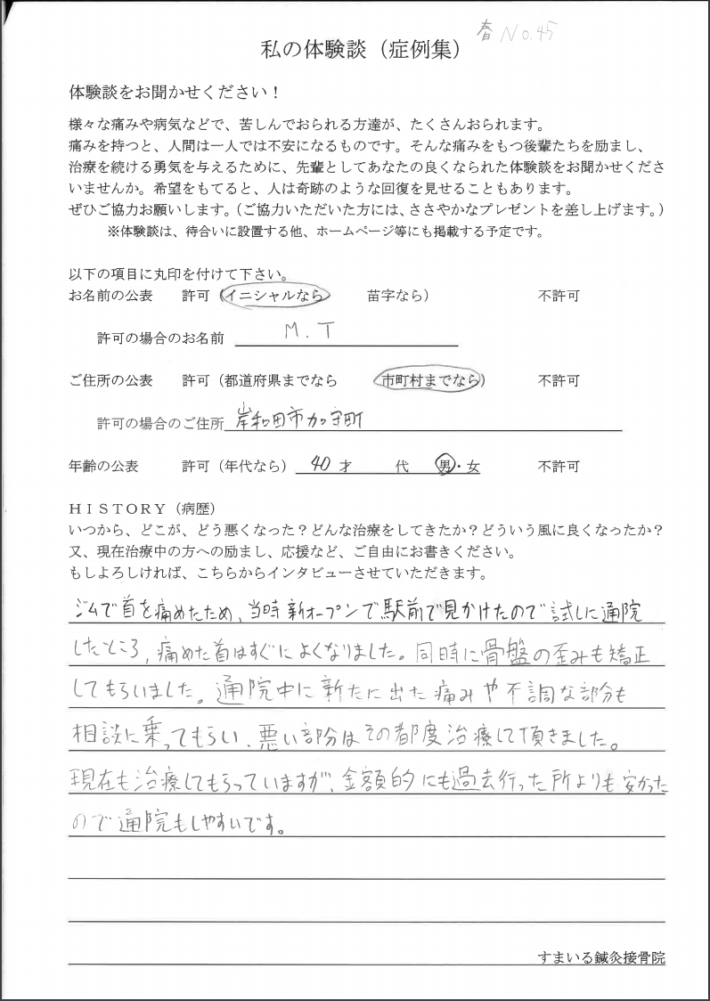 春 No.45
私の体験談（症例集）
体験談をお聞かせください！
様々な痛みや病気などで、苦しんでおられる方達が、たくさんおられます。
痛みを持つと、人間は一人では不安になるものです。そんな痛みをもつ後輩たちを励まし、
治療を続ける勇気を与えるために、先輩としてあなたの良くなられた体験談をお聞かせくださ
いませんか。希望をもてると、人は奇跡のような回復を見せることもあります。
ぜひご協力お願いします。（ご協力いただいた方には、ささやかなプレゼントを差し上げます。）
※体験談は、待合いに設置する他、ホームページ等にも掲載する予定です。
以下の項目に丸印を付けて下さい。
お名前の公表　許可（イニシャルなら　苗字なら）　不許可
許可の場合のお名前　M.T
ご住所の公表　許可（都道府県までなら　市町村までなら）　不許可
許可の場合のご住所　岸和田市加守町
年齢の公表　許可（年代なら）　40 才　代　男・女　不許可
ＨＩＳＴＯＲＹ（病歴）
いつから、どこが、どう悪くなった？どんな治療をしてきたか？どういう風に良くなったか？
又、現在治療中の方への励まし、応援など、ご自由にお書きください。
もしよろしければ、こちらからインタビューさせていただきます。
ジムで首を痛めたため、当時新オープンで駅前で見かけたので試しに通院
したところ、痛めた首はすぐによくなりました。同時に骨盤の歪みも矯正
してもらいました。通院中に新たに出た痛みや不調な部分も
相談に乗ってもらい、悪い部分はその都度治療して頂きました。
現在も治療してもらっていますが、金額的にも過去行った所よりも安かった
ので通院もしやすいです。
すまいる鍼灸接骨院